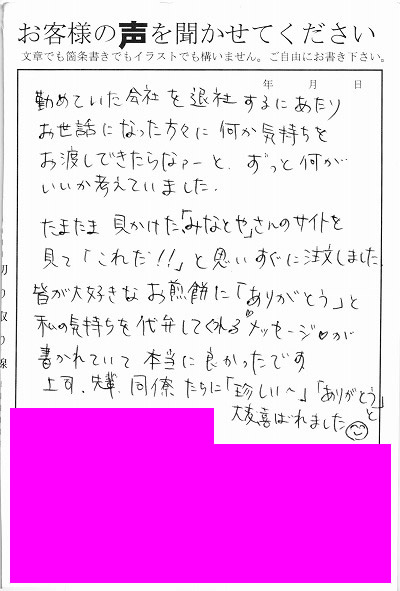 お客様の声を聞かせてください
文章でも箇条書きでもイラストでも構いません。ご自由にお書き下さい。
年 月 日
勤めていた会社を退社するにあたり
お世話になった方々に何か気持ちを
お渡しできたらなァーと、ずっと何が
いいか考えていました。
たまたま見かけた「みなとや」さんのサイトを
見て「これだ!!」と思いすぐに注文しました。
皆が大好きなお煎餅に「ありがとう」と
私の気持ちを代弁してくれる♡メッセージ♡が
書かれていて本当に良かったです
上司、先輩、同僚たちに「珍しい〜」「ありがとう」と
大変喜ばれました
切り取り線